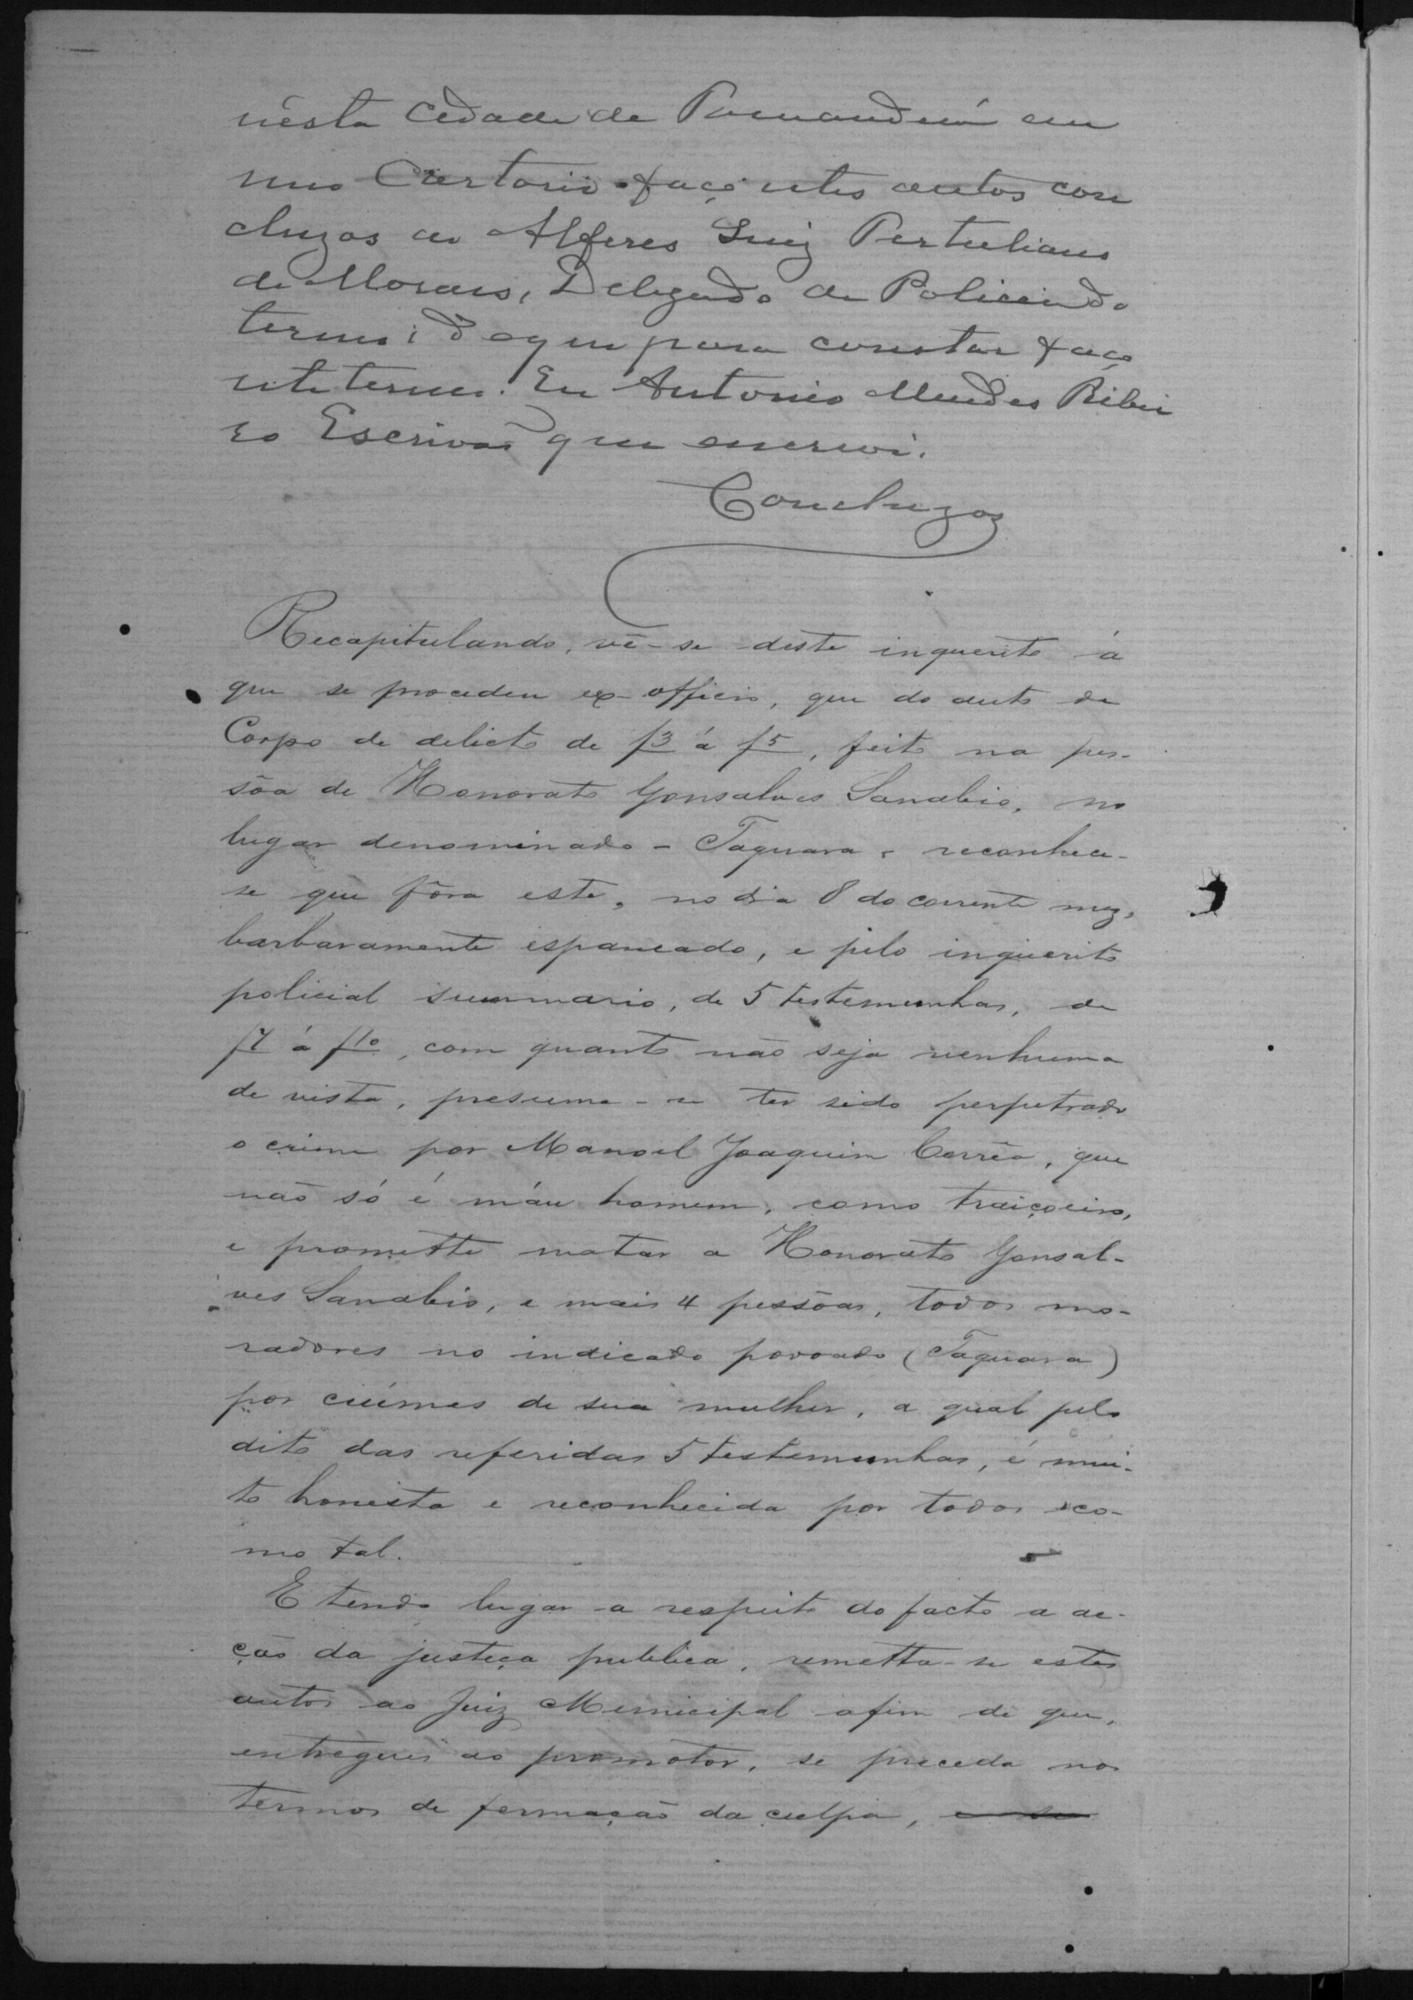 nésta Cidade de Parnanduá em
meo Cartorio faço estes autos con
cluzos ao Alferes Luiz Pertuliano
de Moraes, Delegado de Policia do
termo; do que para constar faço
este termo. Eu Antonio Mendes Ribei
ro Escrivão que escrevi.
Concluzos
Recapitulando, vê-se deste inquerito á
que se procedeu ex-officio, que do auto de
Corpo de delicto de f3 á f5, feito na pes-
sôa de Honorato Gonsalves Sanabio, no
lugar denominado - Taquara, reconhece-
se que fôra este, no dia 8 do corrente mez,
barbaramente espancado, e pelo inquerito
policial summario, de 5 testemunhas, de
f7 á f10, com quanto não seja nenhuma
de vista, presume-se ter sido perpetrado
o crime por Manoel Joaquim Corrêa, que
não só é máu homem, como traiçoeiro,
e promette matar a Honorato Gonsal-
ves Sanabio, e mais 4 pessôas, todos mo-
radores no indicado povoado (Taquara)
por ciúmes de sua mulher, a qual pelo
dito das referidas 5 testemunhas, é mui-
to honesta e reconhecida por todos co-
mo tal.
E tendo lugar a respeito do facto a ac-
ção da justiça publica, remetta-se estes
autos ao Juiz Municipal afim de que,
entregues ao promotor, se proceda nos
termos de formação da culpa, e se